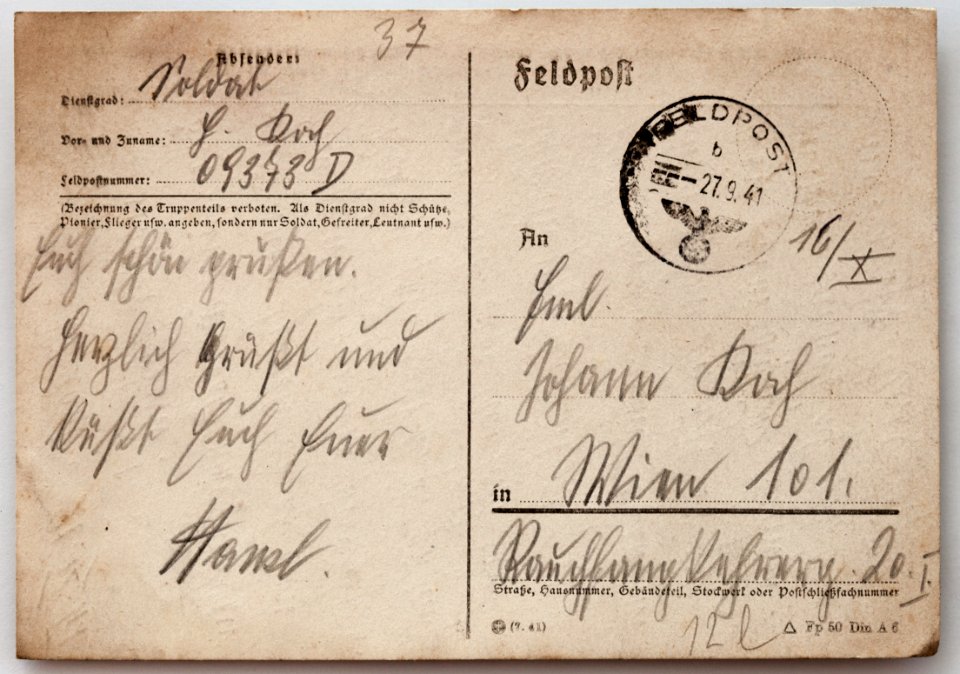 37
Absender:
Dienstgrad: Soldat
Vor- und Zuname: H. Koch
Feldpostnummer: 09373 D
(Bezeichnung des Truppenteils verboten. Als Dienstgrad nicht Schütze,
Pionier, Flieger usw. angeben, sondern nur Soldat, Gefreiter, Leutnant usw.)
Euch schön grüßen.
Herzlich Grüßt und
Küßt Euch Euer
Hansl.
Feldpost
FELDPOST
b
27.9.41
16/X
An
Johann Koch
in Wien 101.
Rauchfangkehrerg. 20. I.
Straße, Hausnummer, Gebäudeteil, Stockwerk oder Postschließfachnummer
(7. 41)
12 l
Fp 50 Din A 6